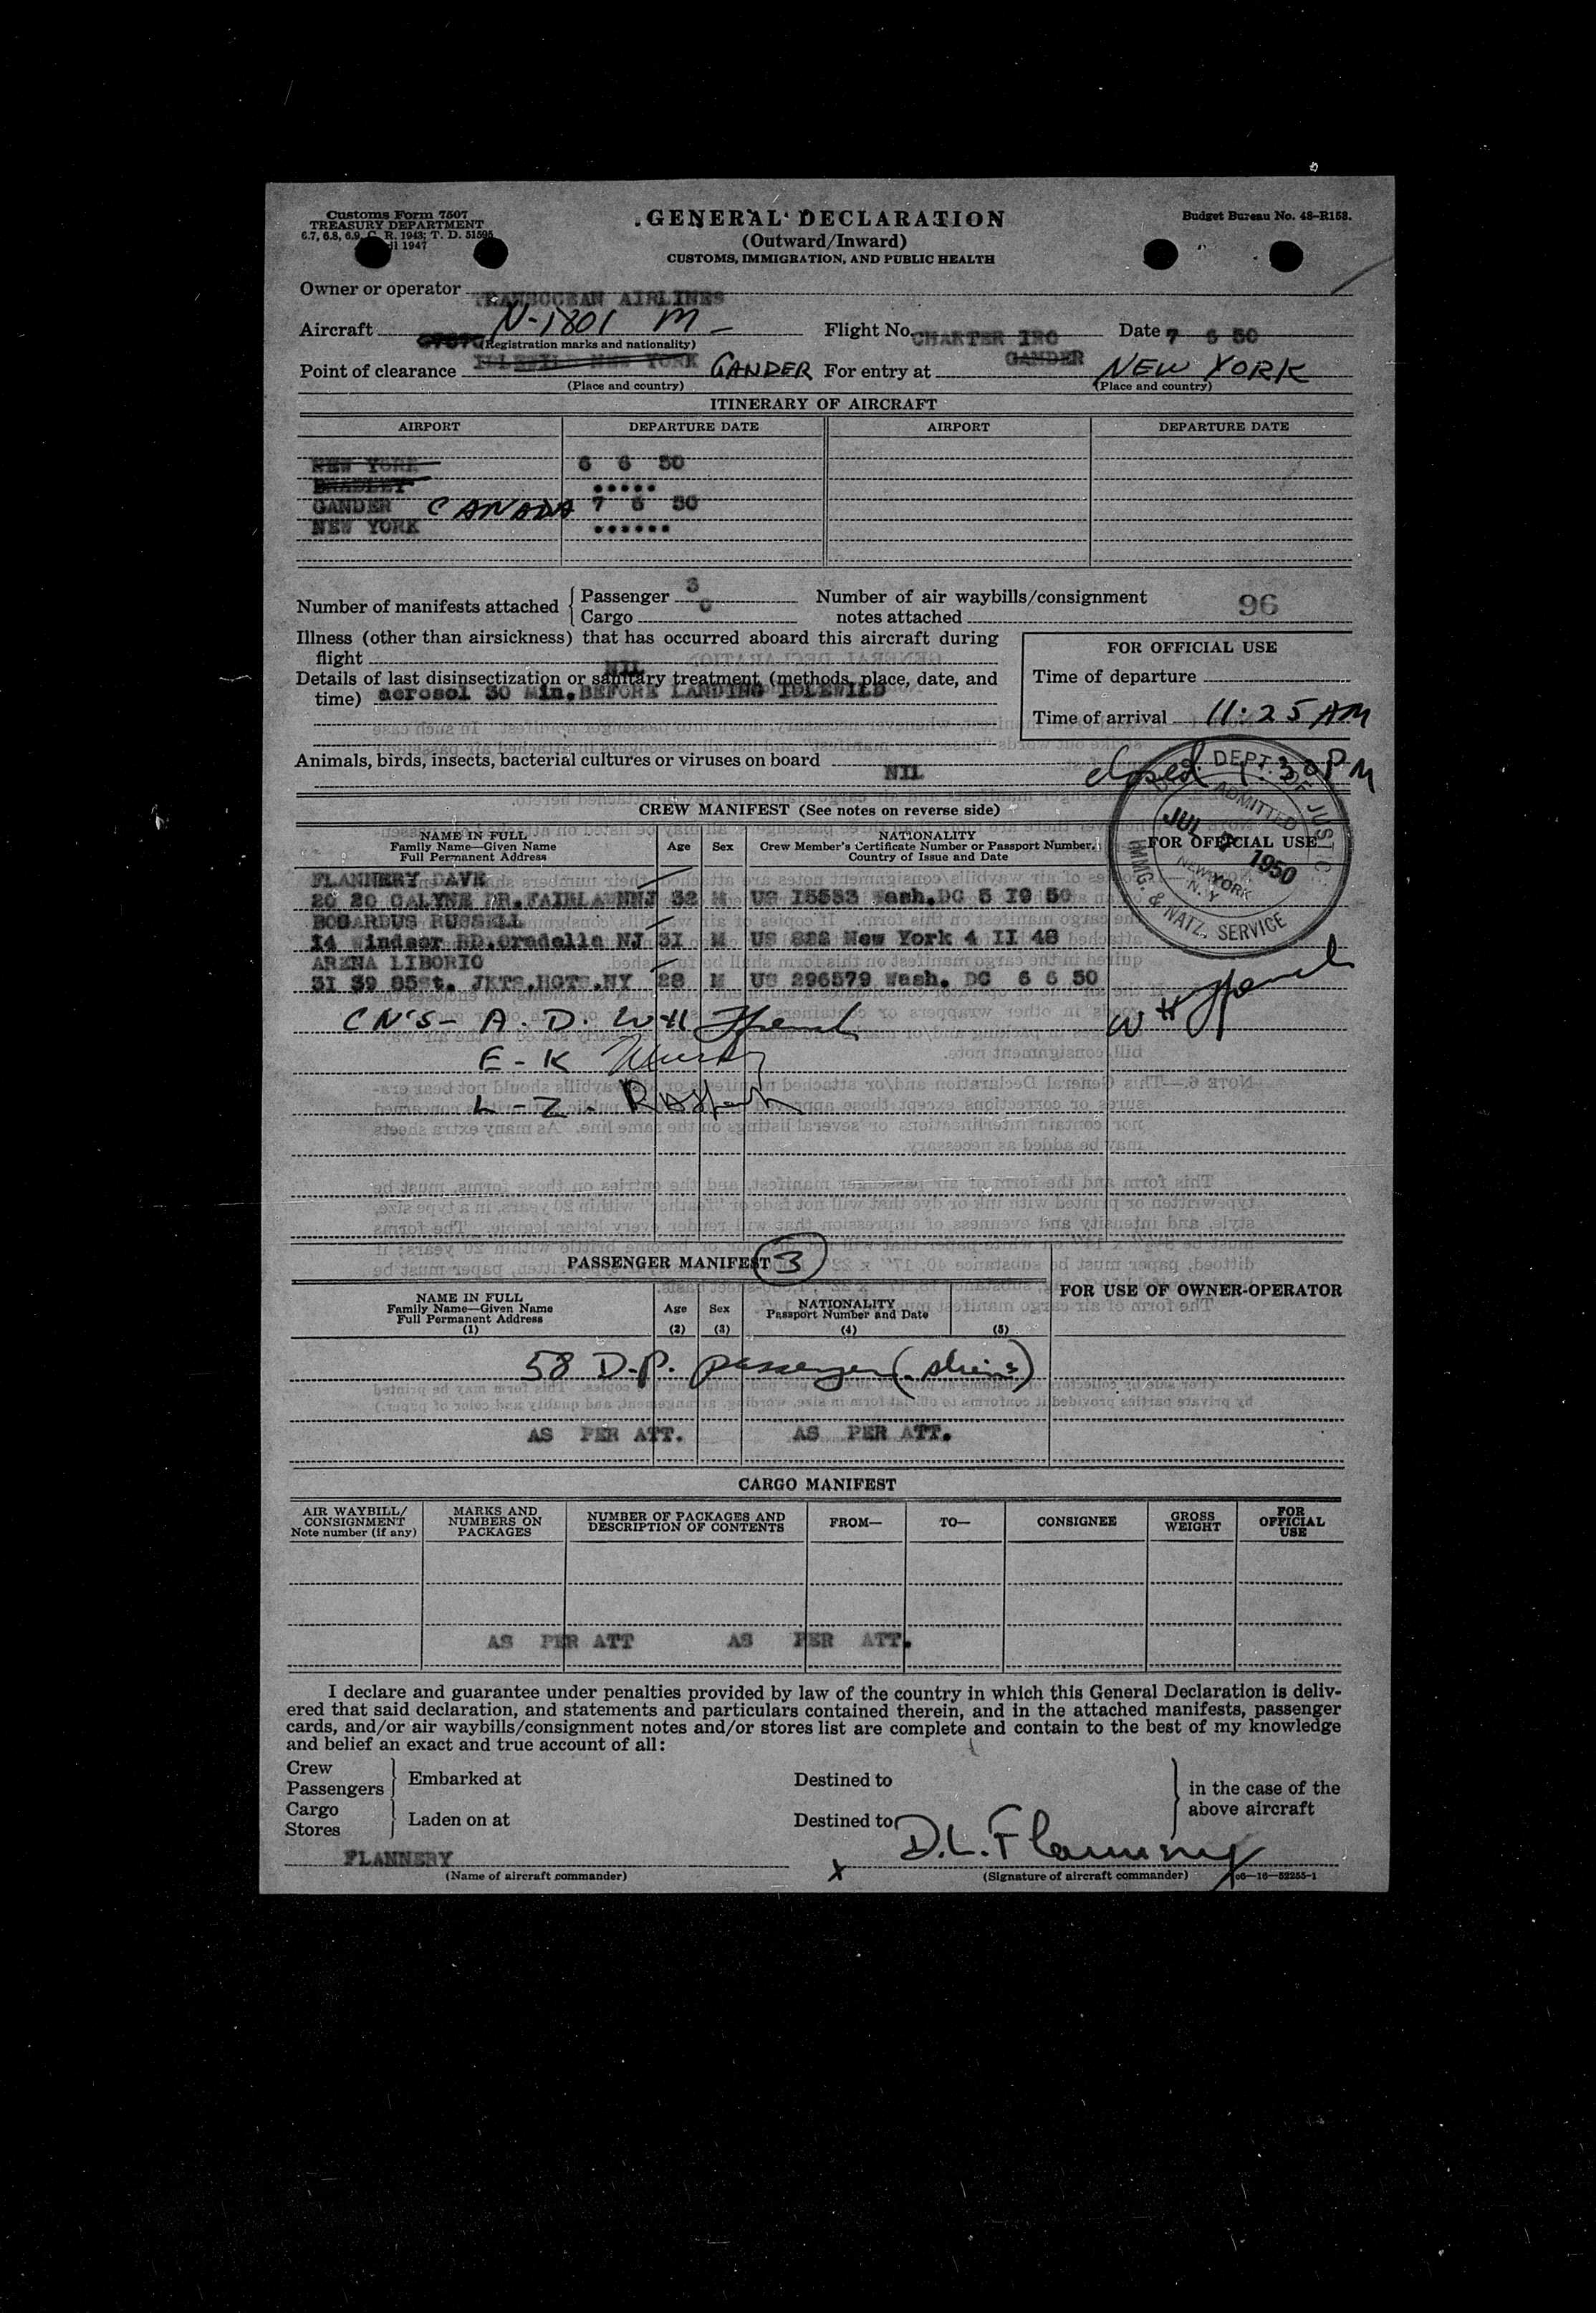 Customs Form 7507
TREASURY DEPARTMENT
6.7, 6.8, 6.9, C. R. 1943; T. D. 51595
1947
GENERAL DECLARATION
(Outward/Inward)
CUSTOMS, IMMIGRATION, AND PUBLIC HEALTH
Budget Bureau No. 48-R158.
Owner or operator TRANSOCEAN AIRLINES
Aircraft N-1801 M- Flight No. CHARTER IRO Date 7 6 50
(Registration marks and nationality)
Point of clearance IDLEWILD NEW YORK GANDER For entry at GANDER NEW YORK
(Place and country) (Place and country)
ITINERARY OF AIRCRAFT
AIRPORT DEPARTURE DATE AIRPORT DEPARTURE DATE
NEW YORK 6 6 50
BRADLEY .....
GANDER CANADA 7 6 50
NEW YORK ......
Number of manifests attached Passenger 3
Cargo
Number of air waybills/consignment
notes attached
96
Illness (other than airsickness) that has occurred aboard this aircraft during
flight NIL
Details of last disinsectization or sanitary treatment (methods, place, date, and
time) aerosol 30 Min. BEFORE LANDING IDLEWILD
FOR OFFICIAL USE
Time of departure
Time of arrival 11:25 AM
closed 1:30 PM
Animals, birds, insects, bacterial cultures or viruses on board NIL
CREW MANIFEST (See notes on reverse side)
NAME IN FULL
Family Name—Given Name
Full Permanent Address
Age
Sex
NATIONALITY
Crew Member's Certificate Number or Passport Number.
Country of Issue and Date
FOR OFFICIAL USE
DEPT. OF JUSTICE
ADMITTED
JUL 1950
NEW YORK
N. Y.
IMMIG. & NATZ. SERVICE
FLANNERY DAVE
20 20 CALYNE DR. FAIRLAWNNJ 32 M US I5583 Wash.DC 5 I9 50
BOGARDUS RUSSELL
I4 Windsor RD.Oradella NJ 3I M US 822 New York 4 II 48
ARENA LIBORIO
3I 39 85St. JKTS.HGTS.NY 28 M US 296579 Wash. DC 6 6 50
CN'S- A. D.
E - K
L - Z.
PASSENGER MANIFEST 3
NAME IN FULL
Family Name—Given Name
Full Permanent Address
(1)
Age
(2)
Sex
(3)
NATIONALITY
Passport Number and Date
(4) (5)
FOR USE OF OWNER-OPERATOR
58 D.P. passenger
AS PER ATT. AS PER ATT.
CARGO MANIFEST
AIR WAYBILL/
CONSIGNMENT
Note number (if any)
MARKS AND
NUMBERS ON
PACKAGES
NUMBER OF PACKAGES AND
DESCRIPTION OF CONTENTS
FROM—
TO—
CONSIGNEE
GROSS
WEIGHT
FOR
OFFICIAL
USE
AS PER ATT AS PER ATT.
I declare and guarantee under penalties provided by law of the country in which this General Declaration is deliv-
ered that said declaration, and statements and particulars contained therein, and in the attached manifests, passenger
cards, and/or air waybills/consignment notes and/or stores list are complete and contain to the best of my knowledge
and belief an exact and true account of all:
Crew
Passengers Embarked at Destined to
Cargo
Stores Laden on at Destined to
in the case of the
above aircraft
FLANNERY x D.L. Flannery
(Name of aircraft commander) (Signature of aircraft commander) c6—16—52255-1